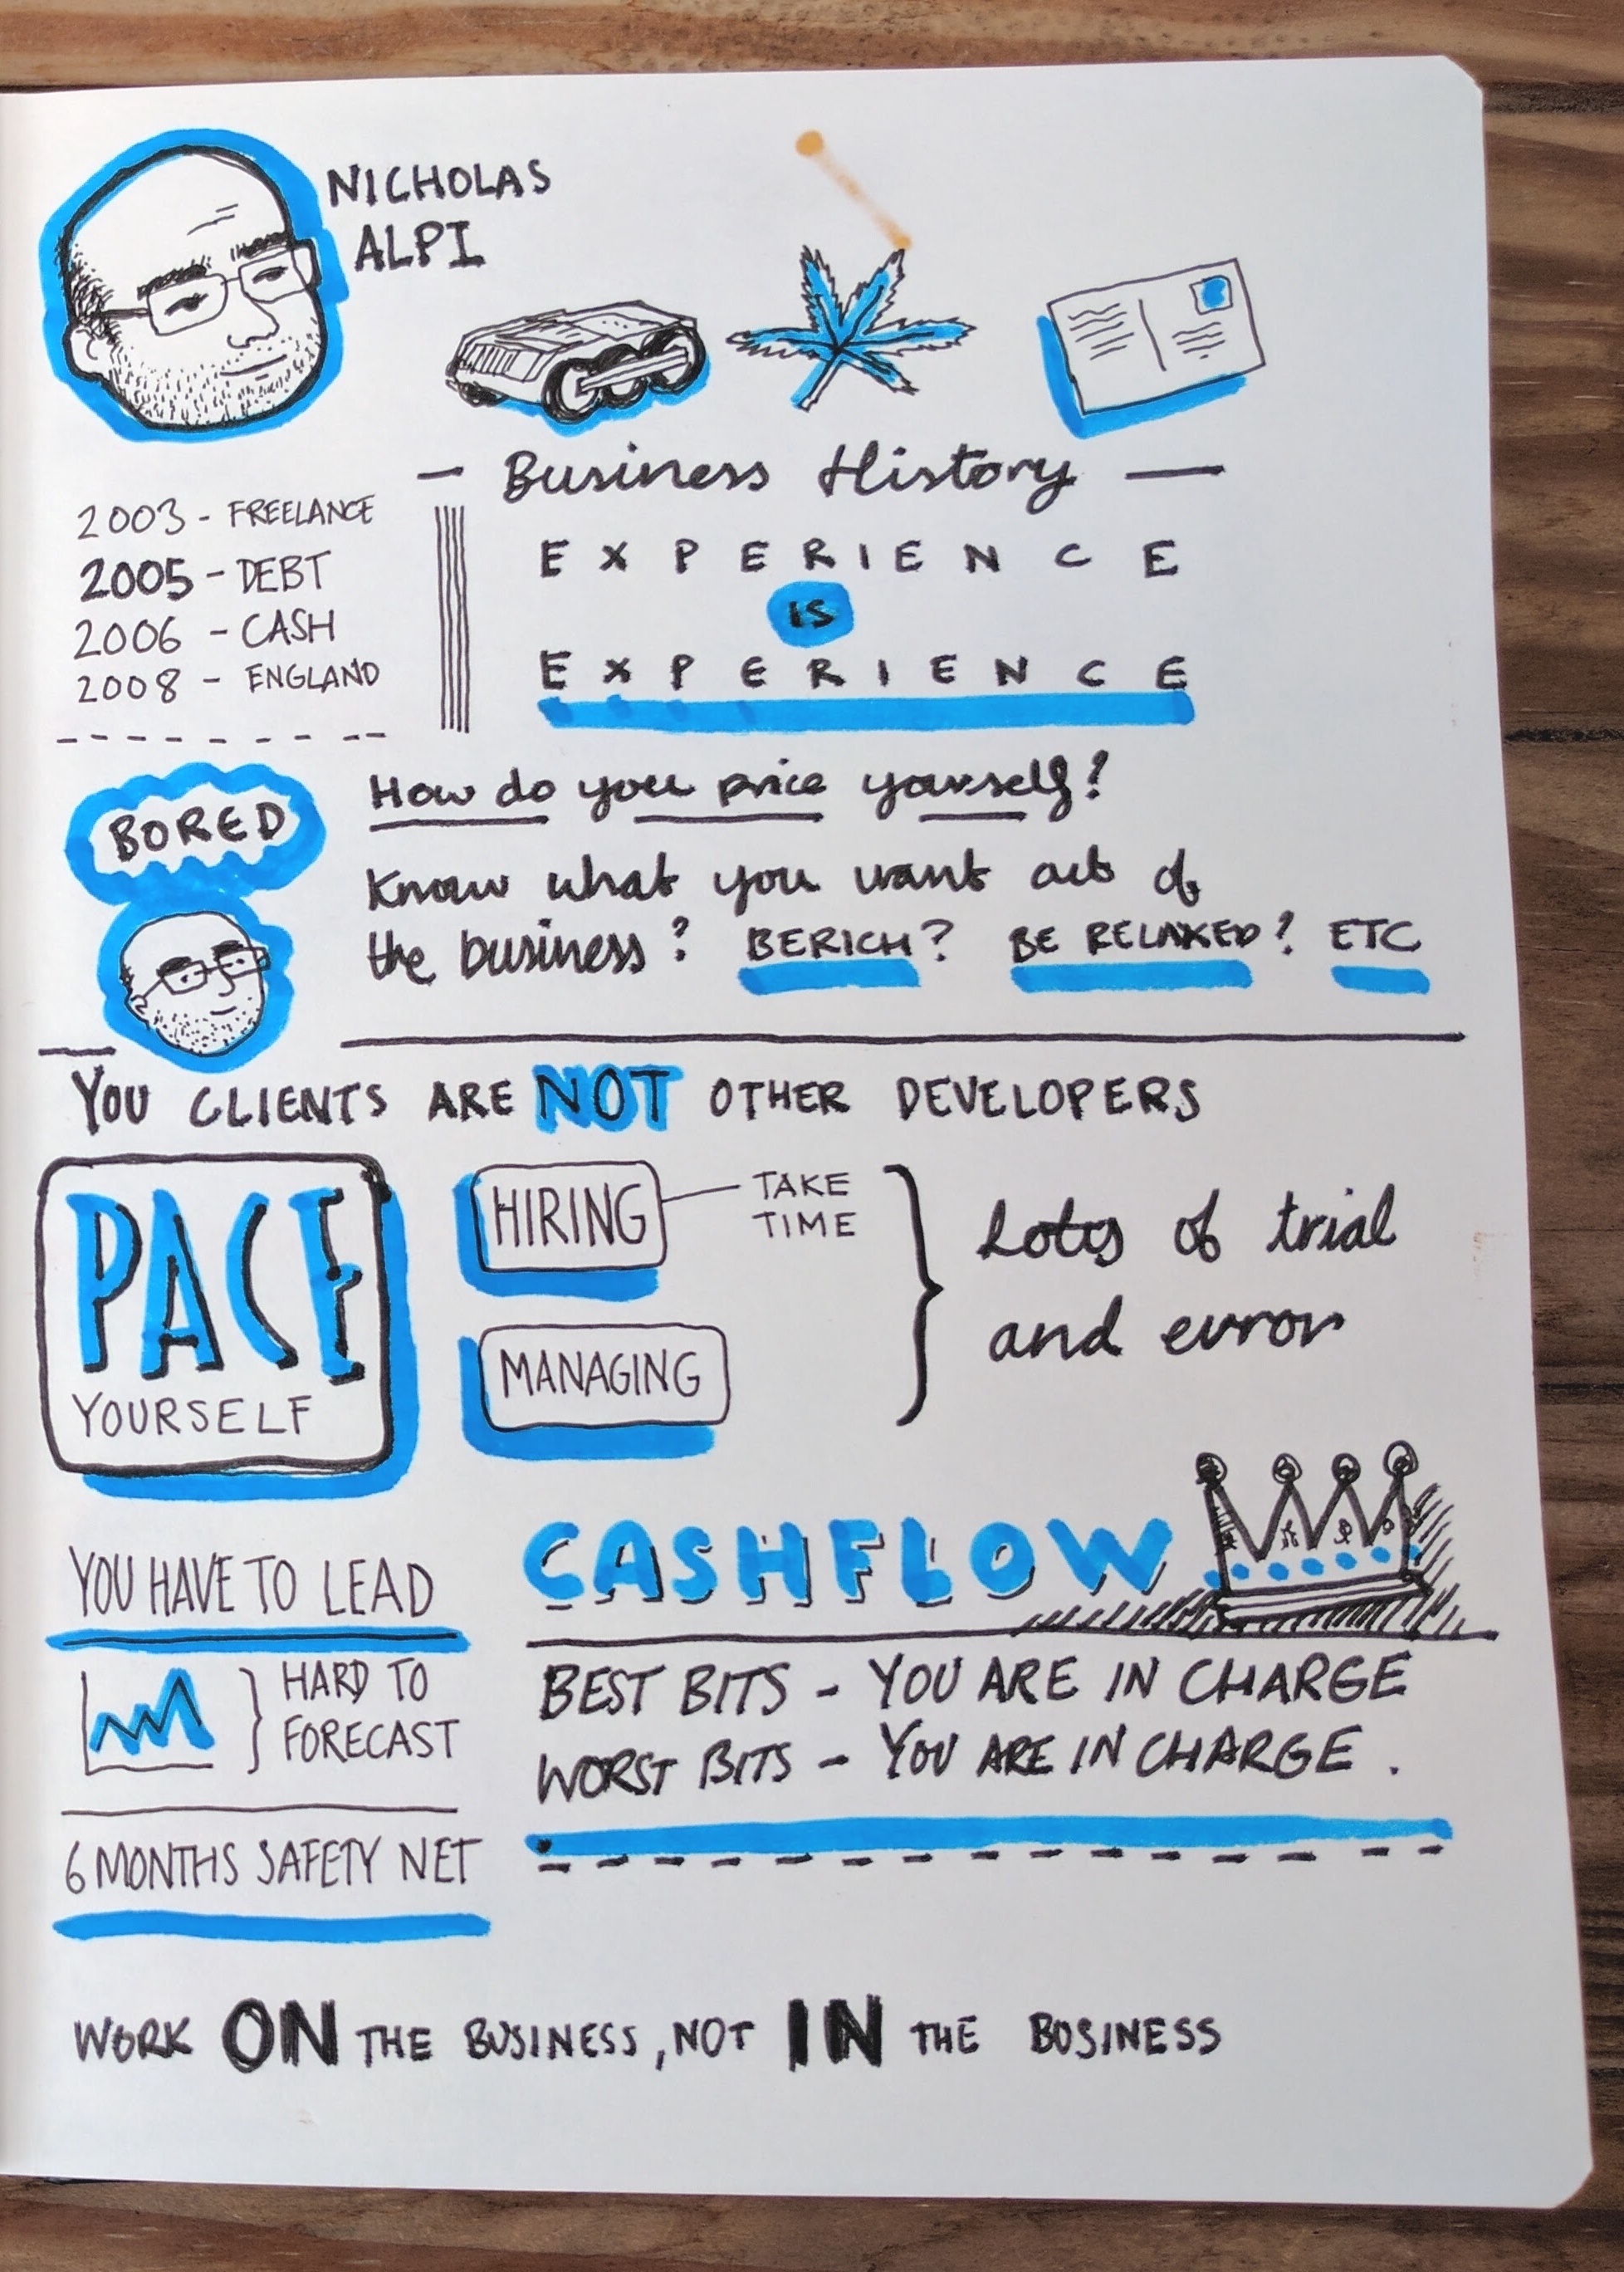 NICHOLAS
ALPI
— Business History —
2003 - FREELANCE
2005 - DEBT
2006 - CASH
2008 - ENGLAND
EXPERIENCE
IS
EXPERIENCE
BORED
How do you price yourself?
Know what you want out of
the business? BE RICH? BE RELAXED? ETC
YOU CLIENTS ARE NOT OTHER DEVELOPERS
PACE
YOURSELF
HIRING
TAKE
TIME
MANAGING
Lots of trial
and error
YOU HAVE TO LEAD
HARD TO
FORECAST
6 MONTHS SAFETY NET
CASHFLOW
BEST BITS - YOU ARE IN CHARGE
WORST BITS - YOU ARE IN CHARGE.
WORK ON THE BUSINESS, NOT IN THE BUSINESS